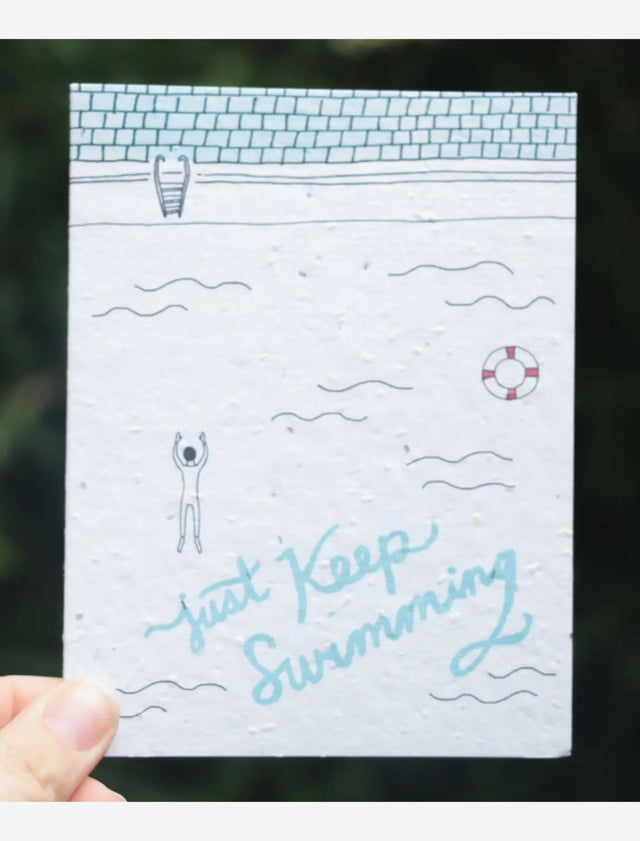 just Keep
Swimming